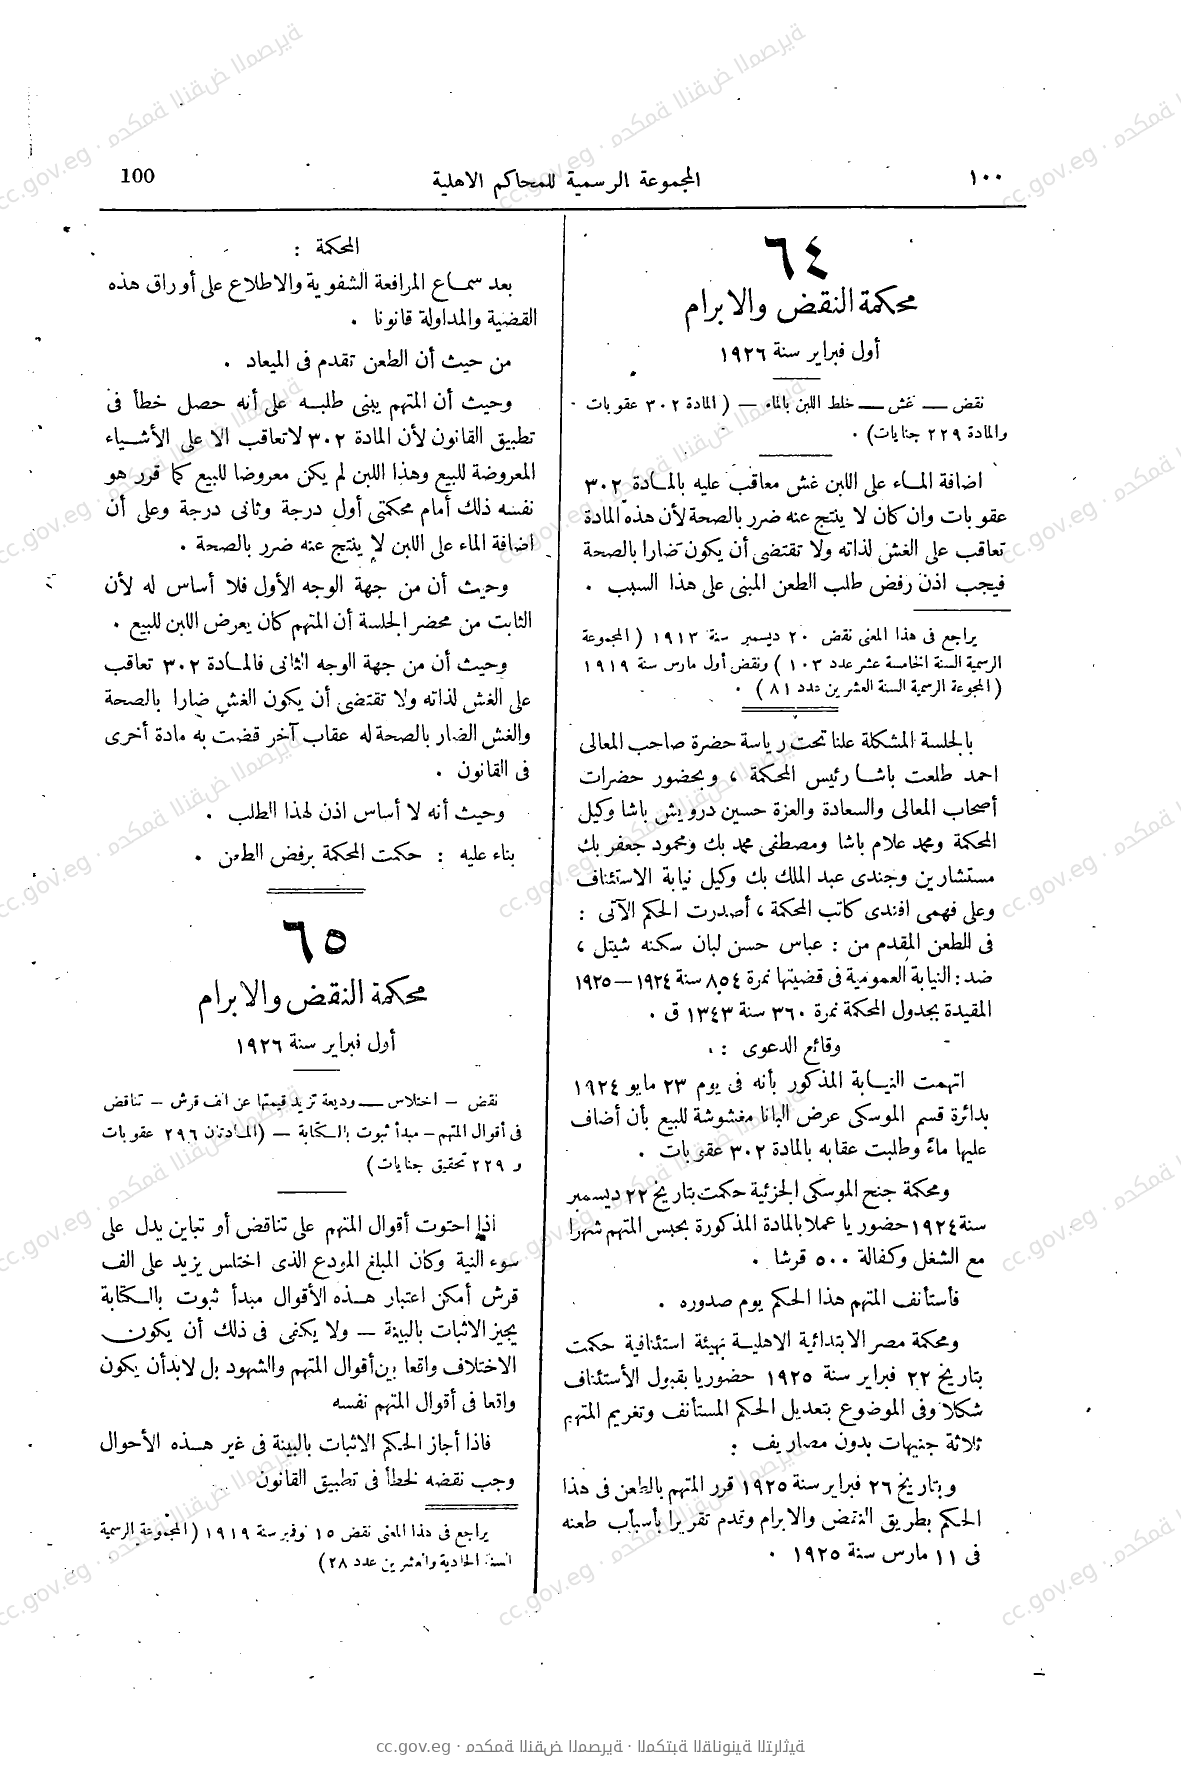 ١٠٠
المجموعة الرسمية للمحاكم الاهلية
100
٦٤
محكمة النقض والابرام
أول فبراير سنة ١٩٢٦
نقض — غش — خلط اللبن بالماء — ( المادة ٣٠٢ عقوبات
والمادة ٢٢٩ جنايات ) .
اضافة المـاء على اللبن غش معاقب عليه بالمـادة ٣٠٢
عقوبات وان كان لا ينتج عنه ضرر بالصحة لأن هذه المادة
تعاقب على الغش لذاته ولا تقتضى أن يكون ضارا بالصحة
فيجب اذن رفض طلب الطعن المبنى على هذا السبب .
يراجع فى هذا المعنى نقض ٢٠ ديسمبر سنة ١٩١٣ ( المجموعة
الرسمية السنة الخامسة عشر عدد ١٠٣ ) ونقض أول مارس سنة ١٩١٩
( المجموعة الرسمية السنة العشرين عدد ٨١ ) .
بالجلسة المشكلة علنا تحت رياسة حضرة صاحب المعالى
احمد طلعت باشـا رئيس المحكمة ، وبحضور حضرات
أصحاب المعالى والسعادة والعزة حسين درويش باشا وكيل
المحكمة ومحمد علام باشا ومصطفى محمد بك ومحمود جعفر بك
مستشارين وجندى عبد الملك بك وكيل نيابة الاستئناف
وعلى فهمى افندى كاتب المحكمة ، أصدرت الحكم الآتى :
فى الطعن المقدم من : عباس حسن لبان سكنه شيتل ،
ضد : النيابة العمومية فى قضيتها نمرة ٨٥٤ سنة ١٩٢٤ — ١٩٢٥
المقيدة بجدول المحكمة نمرة ٣٦٠ سنة ١٣٤٣ ق .
وقائع الدعوى :
اتهمت النيـابة المذكور بأنه فى يوم ٢٣ مايو ١٩٢٤
بدائرة قسم الموسكى عرض البانا مغشوشة للبيع بأن أضاف
عليها ماءً وطلبت عقابه بالمادة ٣٠٢ عقوبات .
ومحكمة جنح الموسكى الجزئية حكمت بتاريخ ٢٢ ديسمبر
سنة ١٩٢٤ حضوريا عملا بالمادة المذكورة بحبس المتهم شهرا
مع الشغل وكفالة ٥٠٠ قرشا .
فأستأنف المتهم هذا الحكم يوم صدوره .
ومحكمة مصر الابتدائية الاهليـة بهيئة استئنافية حكمت
بتاريخ ٢٢ فبراير سنة ١٩٢٥ حضوريا بقبول الأستئناف
شكلا وفى الموضوع بتعديل الحكم المستأنف وتغريم المتهم
ثلاثة جنيهات بدون مصاريف .
وبتاريخ ٢٦ فبراير سنة ١٩٢٥ قرر المتهم بالطعن فى هذا
الحكم بطريق النقض والابرام وقدم تقريرا بأسباب طعنه
فى ١١ مارس سنة ١٩٢٥ .
المحكمة :
بعد سمـاع المرافعة الشفوية والاطلاع على أوراق هذه
القضية والمداولة قانونا .
من حيث أن الطعن تقدم فى الميعاد .
وحيث أن المتهم يبنى طلبـه على أنه حصل خطأ فى
تطبيق القانون لأن المادة ٣٠٢ لا تعاقب الا على الأشـياء
المعروضة للبيع وهذا اللبن لم يكن معروضا للبيع كما قرر هو
نفسه ذلك أمام محكمتى أول درجة وثانى درجة وعلى أن
اضافة الماء على اللبن لا ينتج عنه ضرر بالصحة .
وحيث أن من جهة الوجه الأول فلا أساس له لأن
الثابت من محضر الجلسة أن المتهم كان يعرض اللبن للبيع .
وحيث أن من جهة الوجه الثانى فالمـادة ٣٠٢ تعاقب
على الغش لذاته ولا تقتضى أن يكون الغش ضارا بالصحة
والغش الضار بالصحة له عقاب آخر قضت به مادة أخرى
فى القانون .
وحيث أنه لا أساس اذن لهذا الطلب .
بناء عليه : حكمت المحكمة برفض الطعن .
٦٥
محكمة النقض والابرام
أول فبراير سنة ١٩٢٦
نقض — اختلاس — وديعة تزيد قيمتها عن الف قرش — تناقض
فى أقوال المتهم — مبدأ ثبوت بالـكتابة — (المـادتان ٢٩٦ عقوبات
و ٢٢٩ تحقيق جنايات )
اذا احتوت أقوال المتهم على تناقض أو تباين يدل على
سوء النية وكان المبلغ المودع الذى اختلس يزيد على الف
قرش أمكن اعتبار هـذه الأقوال مبدأ ثبوت بالـكتابة
يجيز الاثبات بالبينة — ولا يكفى فى ذلك أن يكون
الاختلاف واقعا بين أقوال المتهم والشهود بل لابد أن يكون
واقعا فى أقوال المتهم نفسه
فاذا أجاز الحكم الاثبات بالبينة فى غير هـذه الأحوال
وجب نقضه لخطأ فى تطبيق القانون
يراجع فى هذا المعنى نقض ١٥ نوفمبر سنة ١٩١٩ ( المجموعة الرسمية
السنة الحادية والعشرين عدد ٢٨ )
cc.gov.eg · محكمة النقض المصرية · المكتبة القانونية التراثية